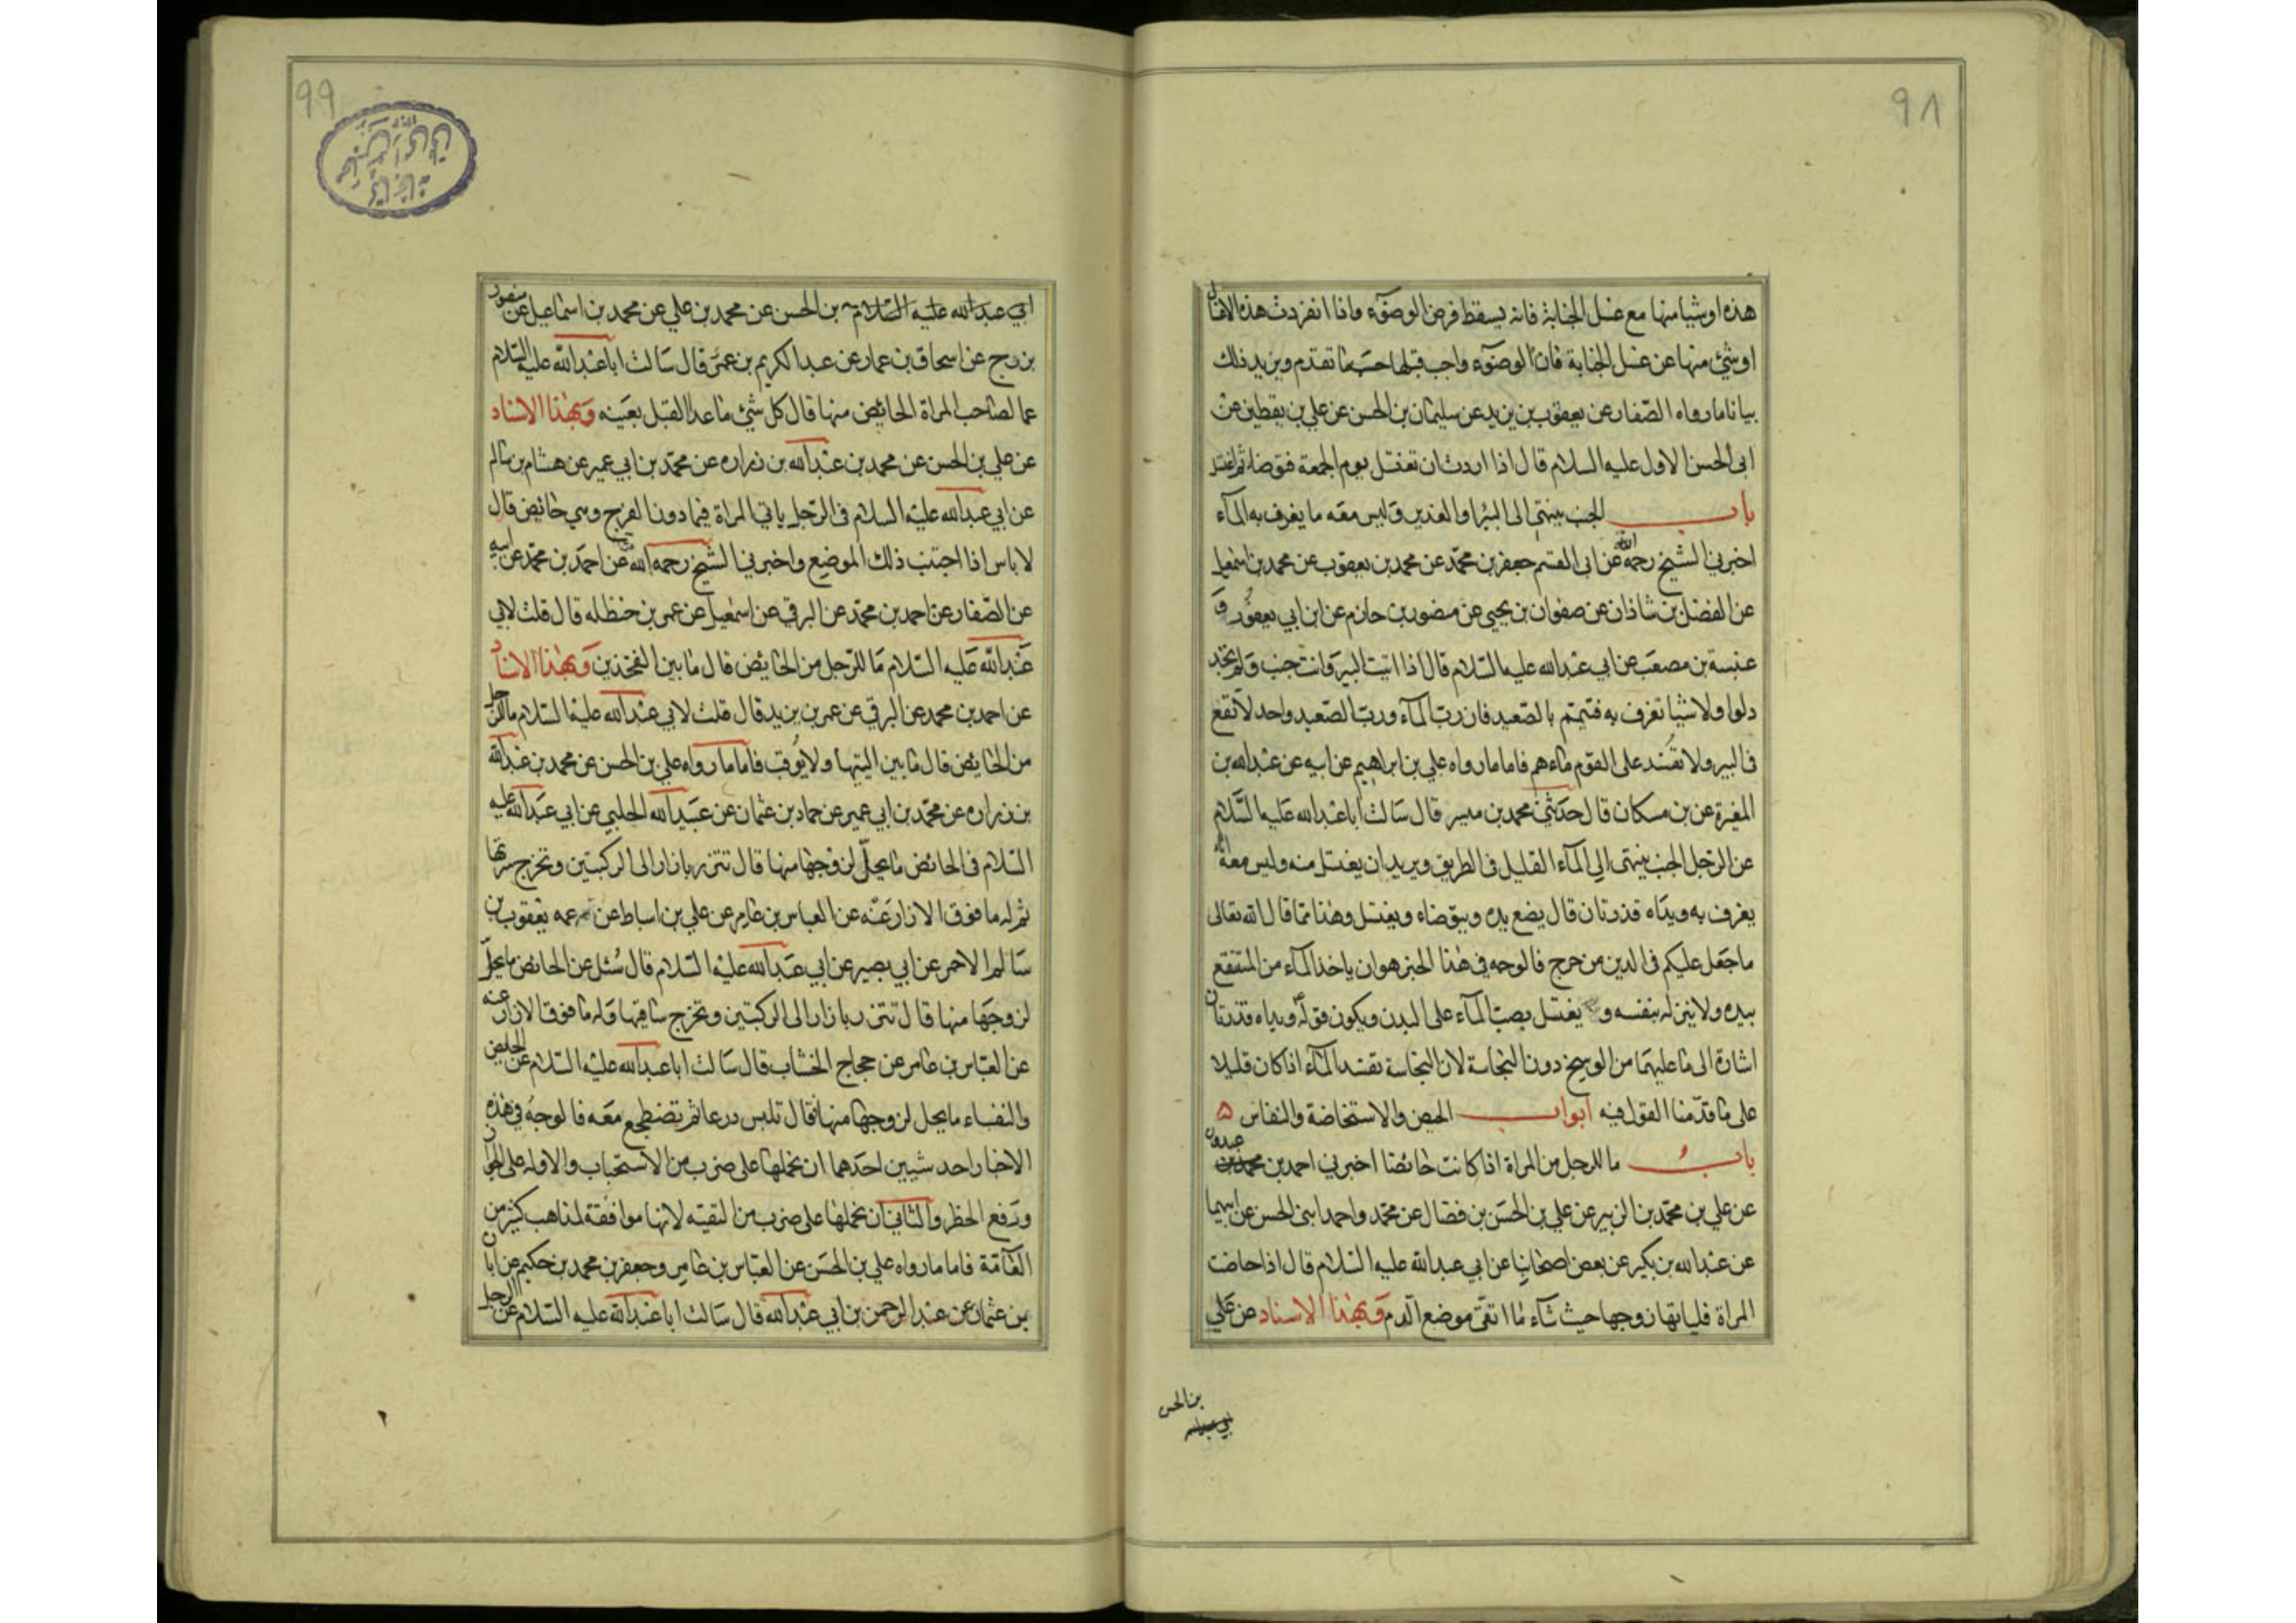 ٩٨
هذه او شيا منها مع غسل الجنابة فانه يسقط فرض الوضوء واذا انفردت هذه الاغسال
او شئ منها عن غسل الجنابة فان الوضوء واجب قبلها حسب ما تقدم ويزيد ذلك
بيانا ما رواه الصّفار عن يعقوب بن يزيد عن سليمان بن الحسن عن علي بن يقطين عن
ابي الحسن الاول عليه السلام قال اذا اردت ان تغتسل يوم الجمعة فتوضا ثم اغتسل
باب الجنب ينتهي الى البئر او الغدير وليس معه ما يغرف به المآء
اخبرني الشيخ رحمه الله عن ابي القسم جعفر بن محمّد عن محمد بن يعقوب عن محمد بن اسمعيل
عن الفضل بن شاذان عن صفوان بن يحيى عن منصور بن حازم عن ابن ابي يعفور و
عنبسة بن مصعب عن ابي عبدالله عليه السّلام قال اذا اتيت البير وانت جنب ولم تجد
دلوا ولا شيا تغرف به فتيمّم بالصّعيد فان ربّ المآء وربّ الصّعيد واحد لا تقع
في البير ولا تفسد على القوم ماءهم فاما ما رواه علي بن ابراهيم عن ابيه عن عبدالله بن
المغيرة عن بن مسكان قال حدّثني محمد بن ميسر قال سالت ابا عبدالله عليه السّلام
عن الرّجل الجنب ينتهى الى المآء القليل في الطريق ويريد ان يغتسل منه وليس معه اناء
يغرف به ويداه قذرتان قال يضع يده ويتوضاء ويغتسل وهذا ممّا قال الله تعالى
ما جعل عليكم في الدين من حرج فالوجه في هذا الخبر هو ان ياخذ المآء من المستنقع
بيده ولا ينزله بنفسه و يغتسل بصبّ المآء على البدن ويكون قوله ويداه قذرتان
اشارة الى ما عليهما من الوسخ دون النجاسة لان النجاسة تفسد المآء اذا كان قليلا
على ما قدّمنا القول فيه ابواب الحيض والاستحاضة والنفاس ه
باب ما للرجل من المراة اذا كانت حائضا اخبرني احمد بن محمد بن عبدون
عن علي بن محمّد بن الزبير عن علي بن الحسن بن فضال عن محمّد واحمد ابني الحسن عن ابيهما
عن عبدالله بن بكير عن بعض اصحابنا عن ابي عبدالله عليه السّلام قال اذا حاضت
المراة فلياتها زوجها حيث شآء ما اتقى موضع الّدم وبهذا الاسناد عن علي
بن الحسن
ابي عبدالله
٩٩
ابي عبدالله عليه السّلام بن الحسن عن محمد بن علي عن محمد بن اسماعيل عن منصور
بزرج عن اسحاق بن عمار عن عبد الكريم بن عمرو قال سالت ابا عبدالله عليه السّلام
عما لصاحب المراة الحائض منها قال كل شئ ما عدا القبل بعينه وبهذا الاسناد
عن علي بن الحسن عن محمد بن عبدالله بن زراره عن محمّد بن ابي عمير عن هشام بن سالم
عن ابي عبدالله عليه السلام في الرّجل ياتي المراة فيما دون الفرج وهي حائض قال
لا باس اذا اجتنب ذلك الموضع واخبرني الشيخ رحمه الله عن احمد بن محمّد عن ابيه
عن الصّفار عن احمد بن محمّد عن البرقي عن اسمعيل عن عمر بن حنظله قال قلت لابي
عبدالله عليه السّلام ما للرّجل من الحائض قال ما بين الفخذين وبهذا الاسناد
عن احمد بن محمد عن البرقي عن عمر بن يزيد قال قلت لابي عبدالله عليه السّلام ما للرّجل
من الحائض قال ما بين اليتيها ولا يوقب فاما ما رواه علي بن الحسن عن محمد بن عبدالله
بن زراره عن محمّد بن ابي عمير عن حماد بن عثمان عن عبيدالله الحلبي عن ابي عبدالله عليه
السّلام في الحائض ما يحلّ لزوجها منها قال تتزر بازار الى الركبتين وتخرج سرّتها
ثم له ما فوق الازار عنه عن العباس بن عامر عن علي بن اسباط عن عمه يعقوب بن
سالم الاحمر عن ابي بصير عن ابي عبدالله عليه السّلام قال سُئل عن الحائض ما يحلّ
لزوجها منها قال تتزر بازار الى الركبتين وتخرج ساقيها وله ما فوق الازار عنه
عن العبّاس بن عامر عن حجاج الخشاب قال سالت ابا عبدالله عليه السّلام عن الحايض
والنفساء ما يحل لزوجها منها فقال تلبس درعا ثم تضطجع معه فالوجه في هذه
الاخبار احد شيين احدهما ان نحملها على ضرب من الاستحباب والاوله على الجواز
ورفع الحظر والثاني ان نحملها على ضرب من التقيّه لانها موافقة لمذاهب كثير من
العامّة فاما ما رواه علي بن الحسن عن العبّاس بن عامر وجعفر بن محمد بن حكيم عن ابان
بن عثمان عن عبدالرحمن بن ابي عبدالله قال سالت ابا عبدالله عليه السّلام عن الرجل